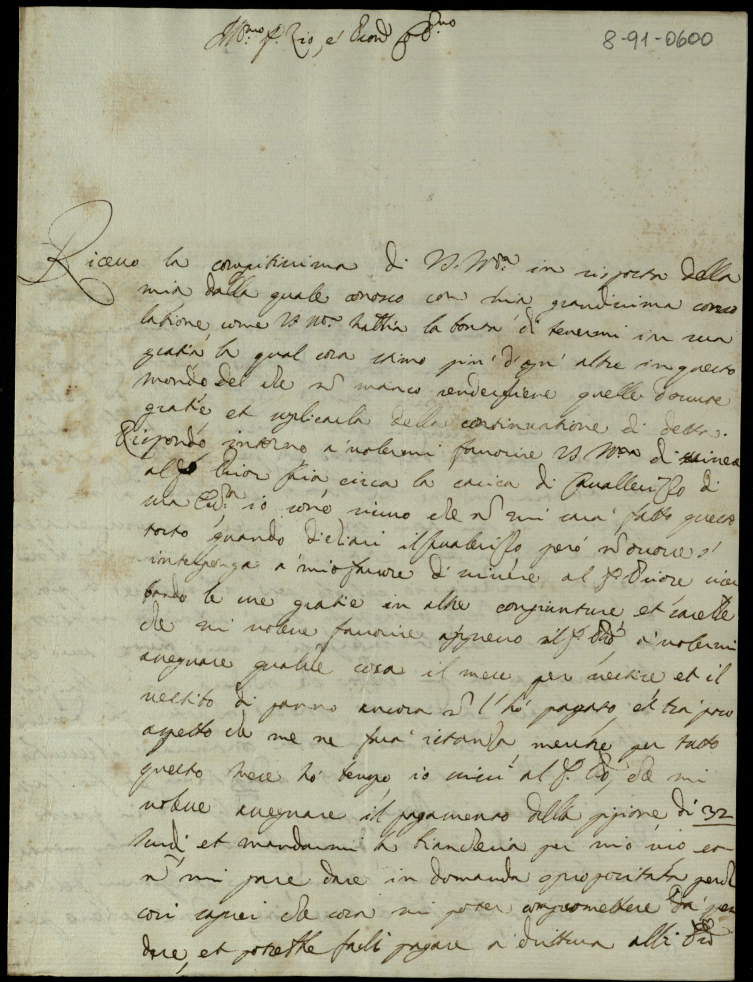 8-91-0600
Ill.mo S.r Zio, e Pron
Riceuo la compitissima di V.S. Ill.ma in risposta della
mia dalla quale conosco con mia grandissima conso
latione come VS Ill.ma habbia la bontà di tenermi in sua
gratia la qual cosa stimo più d'ogn' altra in questo
mondo del che nõ manco rendergliene quelle douute
gratie et suplicarla della continuatione di detta.
Rispondo intorno a uolermi fauorire VS Ill.ma di
al circa la carica di Cauallerizzo di
sua io sono sicuro che nõ mi sarà fatto questo
torto quando però nõ occorre s'
interponga a mio fauore di scriuere al S.r Priore riser
bando le sue gratie in altre congiunture et sarebbe
che mi uolesse fauorire appresso il S.r a uolermi
assegnare qualche cosa il mese per uestire et il
uestito di panno ancora nõ l'hò pagato et trà poco
aspetto che me ne farà istanza mentre per tutto
questo mese hò tempo io scrissi al S.r che mi
uolesse assegnare il pagamento della pigione di 32
scudi et mandarmi la biancheria per mio uso
nõ mi pare dare in domanda spropositata perche
così saprei che cosa mi poter compromettere da spen
dere, et potrebbe farli pagare a drittura alli